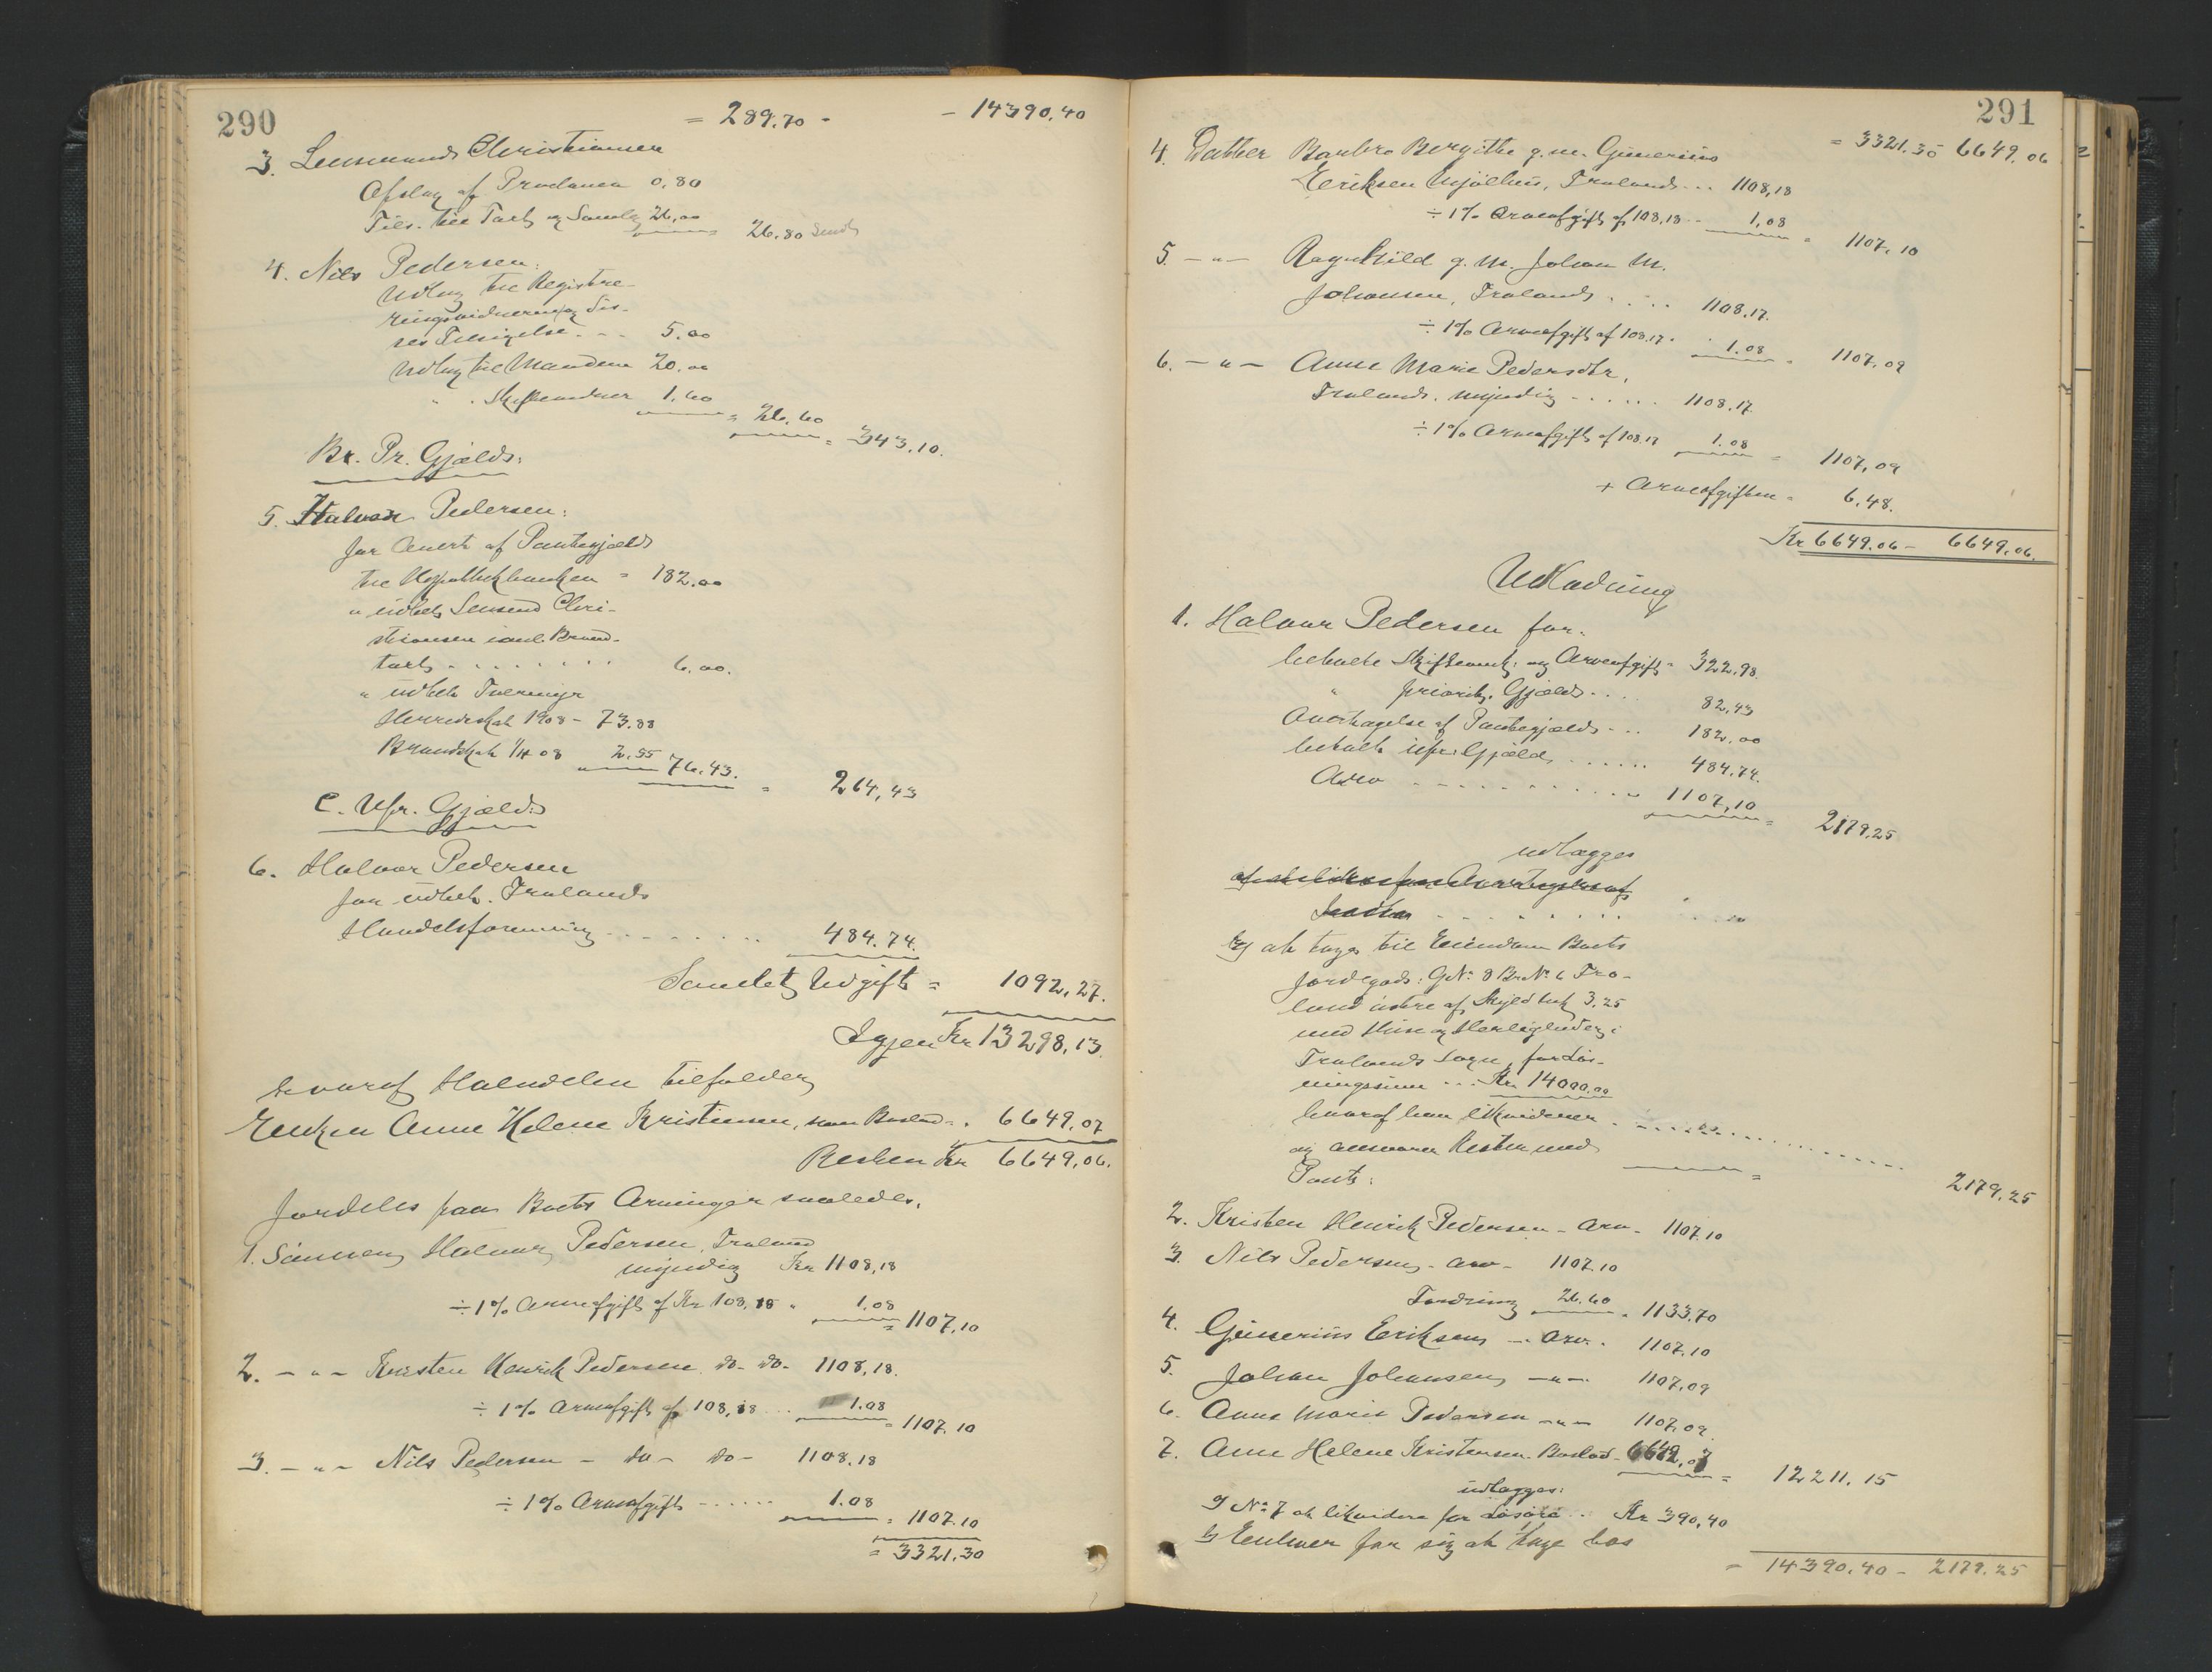 290
= 289.70 -
- 14390,40
3. Lensmand Christiansen
Afslag af Proclama 0,80
Tils. til Taxt og Samling 26,00
= 26.80
4. Nils Pedersen:
Udlæg til Registre-
ringsvidnerne og dis-
ses Tilsigelse . . . 5.00
Udlæg til Mændene 20.00
" " Skiftevidner 1.60
= 26,60
= 343,10.
Br. Pr. Gjæld:
5. Halvor Pedersen:
for Overt. af Pantegjæld
til Hypothekbanken = 182.00
" udbet. Lensmd Chri-
stiansen Brand-
taxt . . . . . . . 6.00.
" udbet.
Herredskat 1908 - 73.88
Brandsk. 08 2.55
76.43.
= 264,43
C. Upr. Gjæld:
6. Halvor Pedersen
for udbet. Frolands
Handelsforening . . . . . . . 484.74.
Samlet Udgift = 1092,27.
Igjen Kr 13298,13.
hvoraf Halvdelen tilfalder
Enken Anne Helene Kristensen, som Boslod = . 6649,07
Resten Kr 6649,06.
fordeles paa Boets Arvinger saaledes.
1. Sønnen Halvor Pedersen, Froland
myndig Kr 1108,18
÷ 1% Arveafgift af Kr 108,18 " 1.08
= 1107,10
2. - " - Kristen Henrik Pedersen do- do- 1108,18.
÷ 1% Arveafgift af 108,18 . . . 1.08
= 1107,10
3. - " - Nils Pedersen - do - do - 1108.18
÷ 1% Arveafgift - . . . . . . 1.08
= 1107.10
= 3321.30
291
= 3321.30 6649,06
4. Datter Barbro Bergithe g.m. Gunerius
Eriksen Mjølhus, Froland . . . 1108,18
÷ 1% Arveafgift af 108,18 - - 1,08
= 1107,10
5. - " - Ragnhild g. m. Johan M.
Johansen, Froland . . . . . 1108.17.
÷ 1% Arveafgift af 108.17 . . 1.08
= 1107,09
6. - " - Anne Marie Pedersdtr,
Froland. myndig - . . . . . 1108.17.
÷ 1% Arveafgift af 108.17 1.08
= 1107,09
+ Arveafgiften = 6,48.
Kr 6649.06 - 6649,06.
Udlodning
1. Halvor Pedersen for:
betalte Skifteomk: og Arveafgift = 322.98.
" priorit. Gjæld . . . . 82.43
Overtagelse af Pantegjæld - . . 182.00
betalt upr. Gjæld . . . . . . 484.74.
Arv - . . . . . . . . . 1107,10
= 2179.25
udlægges
af
b) at tage til Eiendom Boets
Jordegods: GNo 8 BrNo 6 Fro-
land østre af Skyld Mk 3.25
med Huse og Herligheder i
Frolands Sogn, for Løs-
ningssum . . . Kr 14000.00
hvoraf han likviderer . . . . . . . .
og ansvarer Resten med
Pant: = 2179.25
2. Kristen Henrik Pedersen - Arv - 1107.10
3. Nils Pedersen - Arv - 1107.10
Fordring 26.60 = 1133.70
4. Gunerius Eriksen - . Arv . 1107.10
5. Johan Johansen - " - . 1107,09
6. Anne Marie Pedersen - " - 1107,09.
7. Anne Helene Kristensen Boslod - 6649,07
= 12211.15
udlægges:
a) No 7 at likvidere for Løsøre . . . Kr 390,40
b) Enhver for sig at tage hos
= 14390.40 - 2179.25